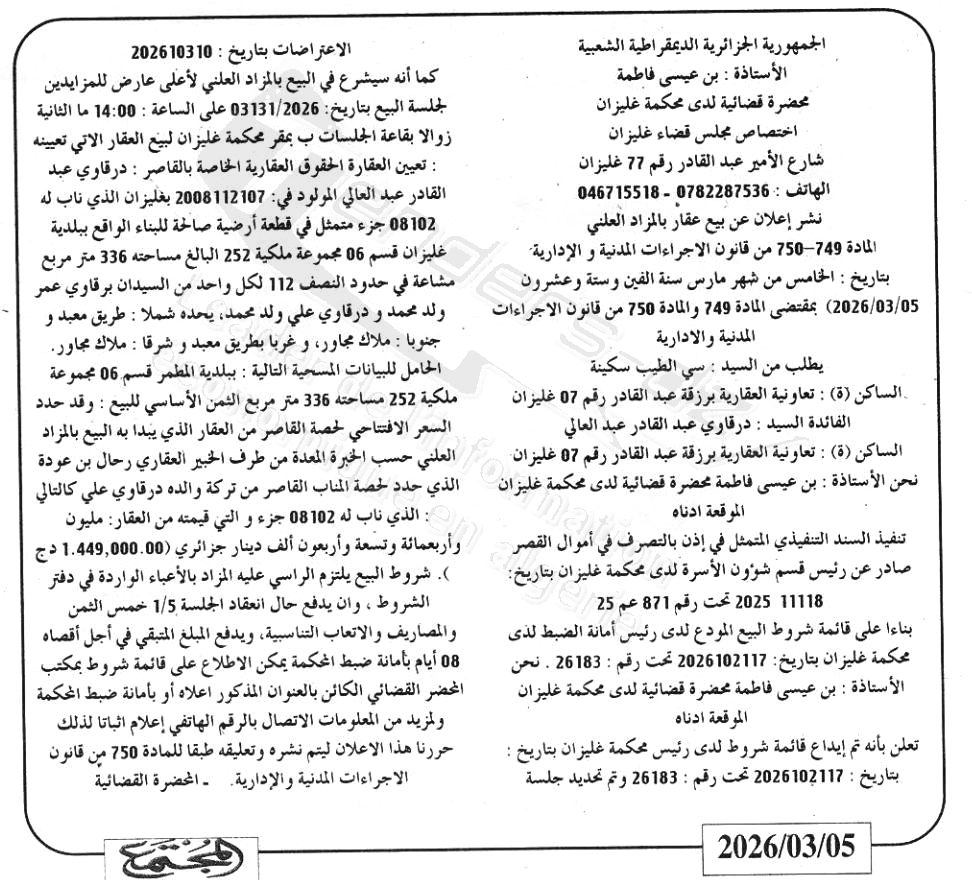 الجمهورية الجزائرية الديمقراطية الشعبية
الأستاذة : بن عيسى فاطمة
محضرة قضائية لدى محكمة غليزان
اختصاص مجلس قضاء غليزان
شارع الأمير عبد القادر رقم 77 غليزان
الهاتف : 0782287536 - 046715518
نشر إعلان عن بيع عقار بالمزاد العلني
المادة 749-750 من قانون الاجراءات المدنية و الإدارية
بتاريخ : الخامس من شهر مارس سنة الفين وستة وعشرون
2026/03/05) بمقتضى المادة 749 والمادة 750 من قانون الاجراءات
المدنية والادارية
يطلب من السيد : سي الطيب سكينة
الساكن (ة) : تعاونية العقارية برزقة عبد القادر رقم 07 غليزان
الفائدة السيد : درقاوي عبد القادر عبد العالي
الساكن (ة) : تعاونية العقارية برزقة عبد القادر رقم 07 غليزان
نحن الأستاذة : بن عيسى فاطمة محضرة قضائية لدى محكمة غليزان
الموقعة ادناه
تنفيذ السند التنفيذي المتمثل في إذن بالتصرف في أموال القصر
صادر عن رئيس قسم شؤون الأسرة لدى محكمة غليزان بتاريخ:
11118 2025 تحت رقم 871 عم 25
بناءا على قائمة شروط البيع المودع لدى رئيس أمانة الضبط لذى
محكمة غليزان بتاريخ: 2026102117 تحت رقم : 26183 . نحن
الأستاذة : بن عيسى فاطمة محضرة قضائية لدى محكمة غليزان
الموقعة ادناه
تعلن بأنه تم إيداع قائمة شروط لدى رئيس محكمة غليزان بتاريخ :
بتاريخ : 2026102117 تحت رقم : 26183 وتم تحديد جلسة
الاعتراضات بتاريخ : 202610310
كما أنه سيشرع في البيع بالمزاد العلني لأعلى عارض للمزايدين
لجلسة البيع بتاريخ: 03131/2026 على الساعة : 14:00 ما الثانية
زوالا بقاعة الجلسات ب بمقر محكمة غليزان لبيع العقار الاتي تعيينه
: تعيين العقارة الحقوق العقارية الخاصة بالقاصر : درقاوي عبد
القادر عبد العالي المولود في: 2008112107 بغليزان الذي ناب له
08102 جزء متمثل في قطعة أرضية صالحة للبناء الواقع ببلدية
غليزان قسم 06 مجموعة ملكية 252 البالغ مساحته 336 متر مربع
مشاعة في حدود النصف 112 لكل واحد من السيدان برقاوي عمر
ولد محمد و درقاوي علي ولد محمد، يحده شملا : طريق معبد و
جنوبا : ملاك مجاور، و غربا بطريق معبد و شرقا : ملاك مجاور.
الحامل للبيانات المسحية التالية : ببلدية المطمر قسم 06 مجموعة
ملكية 252 مساحته 336 متر مربع الثمن الأساسي للبيع : وقد حدد
السعر الافتتاحي لحصة القاصر من العقار الذي يبدا به البيع بالمزاد
العلني حسب الخبرة المعدة من طرف الخبير العقاري رحال بن عودة
الذي حدد لحصة المناب القاصر من تركة والده درقاوي علي كالتالي
: الذي ناب له 08102 جزء و التي قيمته من العقار: مليون
وأربعمائة وتسعة وأربعون ألف دينار جزائري (1.449,000.00 دج
). شروط البيع يلتزم الراسي عليه المزاد بالأعباء الواردة في دفتر
الشروط ، وان يدفع حال انعقاد الجلسة 1/5 خمس الثمن
والمصاريف والاتعاب التناسبية، ويدفع المبلغ المتبقي في أجل أقصاه
08 أيام بأمانة ضبط المحكمة يمكن الاطلاع على قائمة شروط بمكتب
المحضر القضائي الكائن بالعنوان المذكور اعلاه أو بأمانة ضبط المحكمة
ولمزيد من المعلومات الاتصال بالرقم الهاتفي إعلام اثباتا لذلك
حررنا هذا الاعلان ليتم نشره وتعليقه طبقا للمادة 750 من قانون
الاجراءات المدنية والإدارية. - المحضرة القضائية
المجتمع
2026/03/05